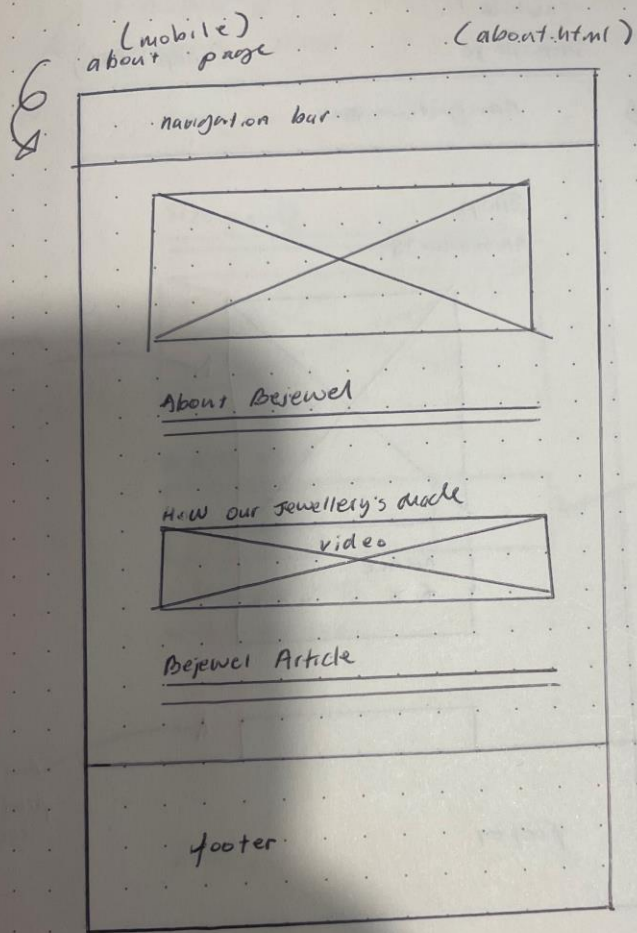 (mobile)
about page
(about.html)
navigation bar
About Bejewel
How our Jewellery's made
video
Bejewel Article
footer